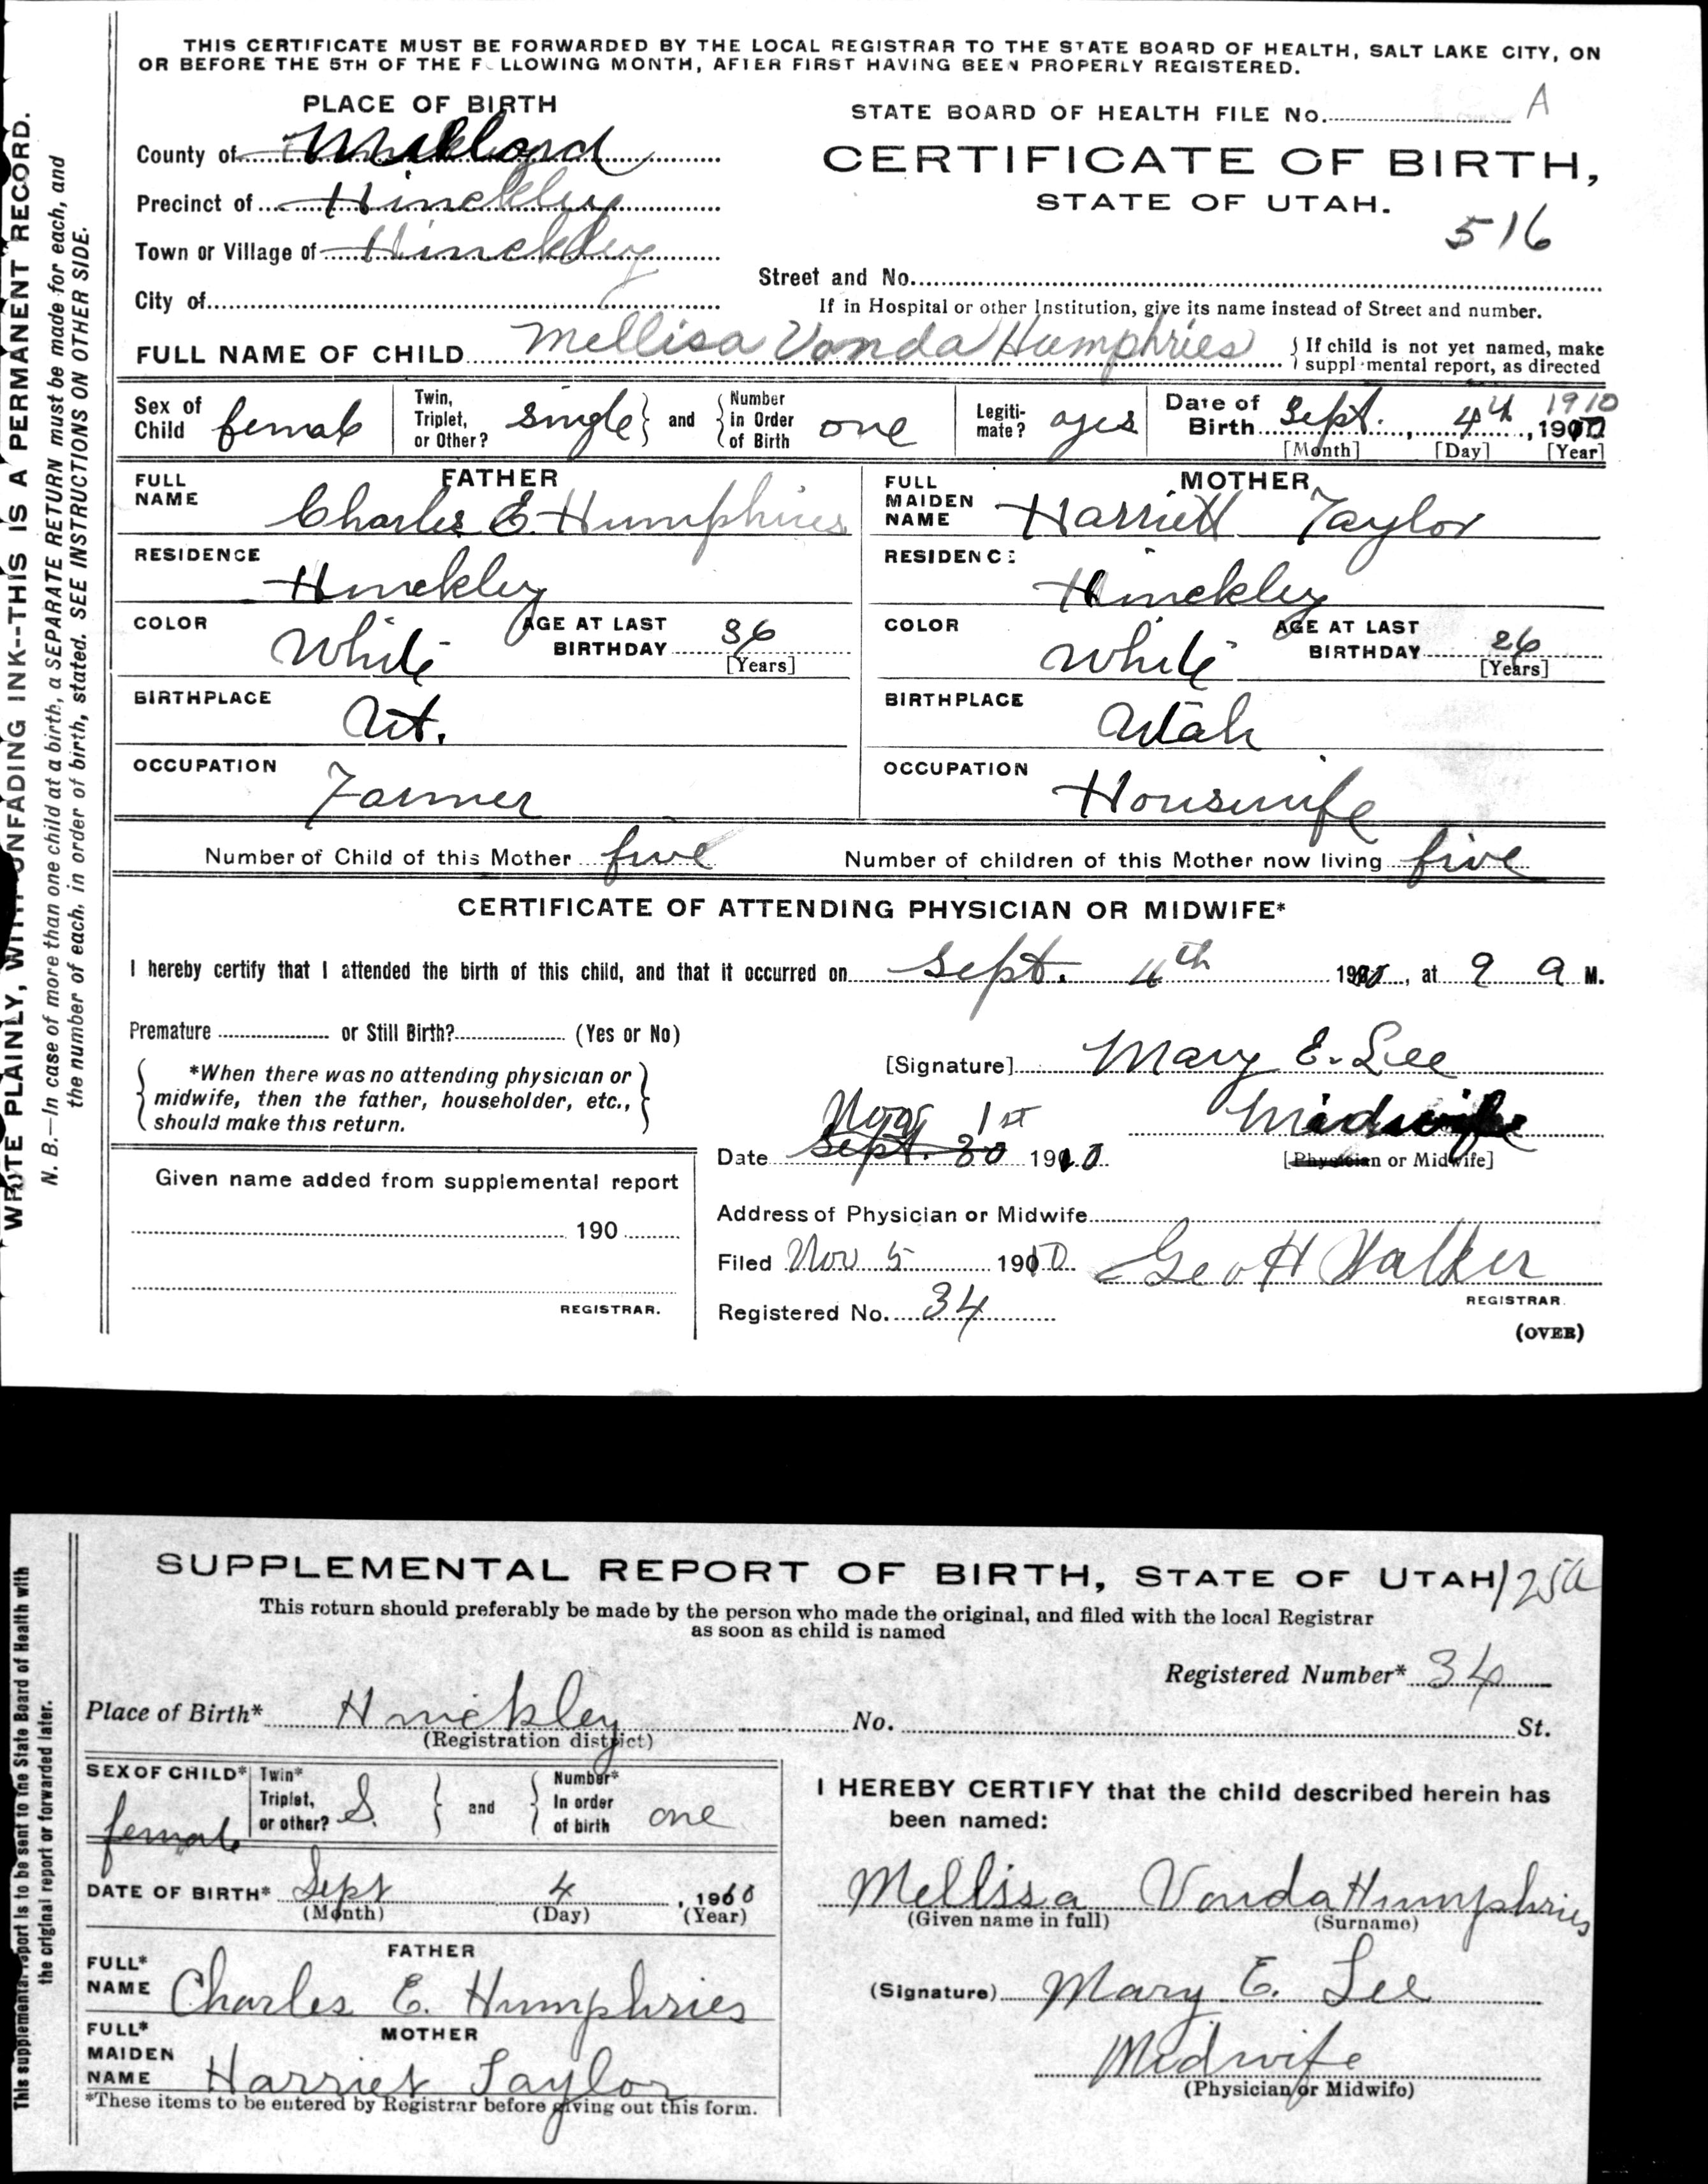 THIS CERTIFICATE MUST BE FORWARDED BY THE LOCAL REGISTRAR TO THE STATE BOARD OF HEALTH, SALT LAKE CITY, ON
OR BEFORE THE 5TH OF THE F LLOWING MONTH, AFTER FIRST HAVING BEEN PROPERLY REGISTERED.
WRITE PLAINLY, WITH UNFADING INK--THIS IS A PERMANENT RECORD.
N. B.—In case of more than one child at a birth, a SEPARATE RETURN must be made for each, and
the number of each, in order of birth, stated. SEE INSTRUCTIONS ON OTHER SIDE.
PLACE OF BIRTH
County of Millard
Precinct of Hinckley
Town or Village of Hinckley
City of
STATE BOARD OF HEALTH FILE No. A
CERTIFICATE OF BIRTH,
STATE OF UTAH.
516
Street and No.
If in Hospital or other Institution, give its name instead of Street and number.
FULL NAME OF CHILD Mellisa Vonda Humphries
If child is not yet named, make
suppl mental report, as directed
Sex of Child female
Twin, Triplet, or Other? single and Number in Order of Birth one
Legitimate?
Date of Birth Sept. 4th 1910
[Month] [Day] [Year]
FATHER
FULL NAME Charles E. Humphries
RESIDENCE Hinckley
COLOR White AGE AT LAST BIRTHDAY 36 [Years]
BIRTHPLACE Ut.
OCCUPATION Farmer
MOTHER
FULL MAIDEN NAME Harriett Taylor
RESIDENCE Hinckley
COLOR White AGE AT LAST BIRTHDAY 26 [Years]
BIRTHPLACE Utah
OCCUPATION Housewife
Number of Child of this Mother five Number of children of this Mother now living five
CERTIFICATE OF ATTENDING PHYSICIAN OR MIDWIFE*
I hereby certify that I attended the birth of this child, and that it occurred on Sept. 4th 1910, at 9 a M.
Premature or Still Birth? (Yes or No)
*When there was no attending physician or
midwife, then the father, householder, etc.,
should make this return.
[Signature] Mary E. Lee
Midwife
[Physician or Midwife]
Nov 1st
Date Sept. 30 1910
Given name added from supplemental report
190
REGISTRAR.
Address of Physician or Midwife
Filed Nov 5 1910 Geo H Walker
REGISTRAR.
Registered No. 34
(OVER)
SUPPLEMENTAL REPORT OF BIRTH, STATE OF UTAH 125a
This return should preferably be made by the person who made the original, and filed with the local Registrar
as soon as child is named
This supplemental report is to be sent to the State Board of Health with
the original report or forwarded later.
Registered Number* 34
Place of Birth* Hinckley No. St.
(Registration district)
SEX OF CHILD* female
Twin* Triplet, or other? S. and Number* In order of birth one
DATE OF BIRTH* Sept 4, 1910
(Month) (Day) (Year)
FATHER
FULL* NAME Charles E. Humphries
MOTHER
FULL* MAIDEN NAME Harriet Taylor
*These items to be entered by Registrar before giving out this form.
I HEREBY CERTIFY that the child described herein has
been named:
Mellissa Vonda Humphries
(Given name in full) (Surname)
(Signature) Mary E. Lee
Midwife
(Physician or Midwife)